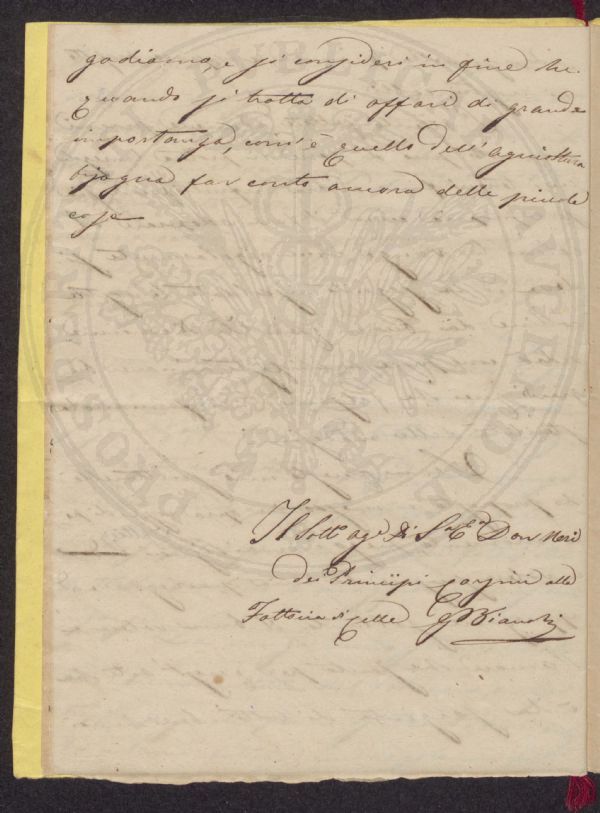 godiamo, e si consideri in fine che
quando si tratta di affari di grande
importanza, com'è quello dell'agricoltura
bisogna far conto ancora delle piccole
cose
Il Sotto Age di S. E. Don Neri
dei Principi Corsini alla
Fattoria di Celle G Bianchi
PROSPERITATI PUBLICAE AUGENDAE